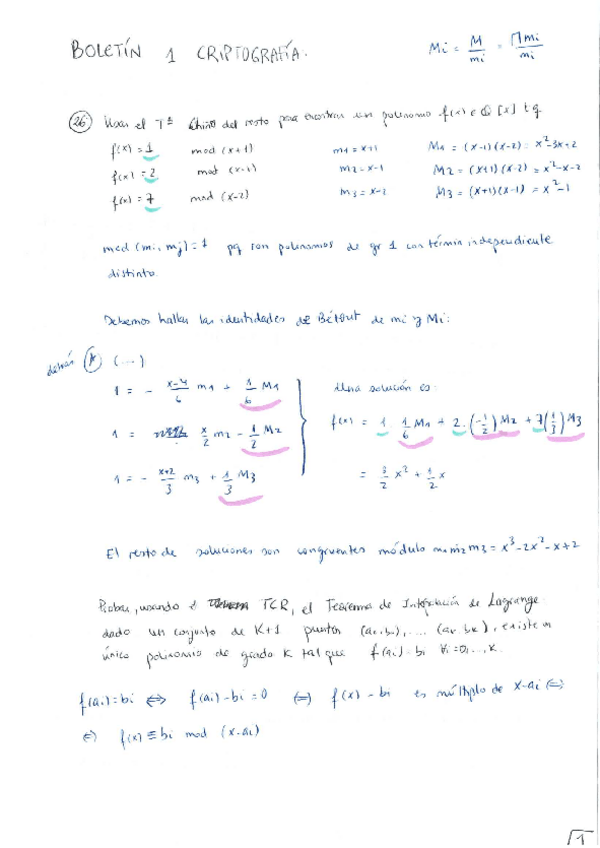 BOLETÍN 1 CRIPTOGRAFÍA. Mi = M/mi = ∏mi/mi
26 Usar el Tª Chino del resto para encontrar un polinomio f(x) ∈ Q[x] tq
f(x) = 1 mod (x+1) m1 = x+1 M1 = (x-1)(x-2) = x²-3x+2
f(x) = 2 mod (x-1) m2 = x-1 M2 = (x+1)(x-2) = x²-x-2
f(x) = 7 mod (x-2) m3 = x-2 M3 = (x+1)(x-1) = x²-1
mcd (mi, mj) = 1 pq son polinomios de gr 1 con términ independiente
distinto.
Debemos hallar las identidades de Bétout de mi y Mi:
detrás A (...)
1 = - x-4/6 m1 + 1/6 M1 Una solución es:
1 = x/2 m2 - 1/2 M2 f(x) = 1 1/6 M1 + 2·(-1/2) M2 + 7(1/3) M3
1 = - x+2/3 m3 + 1/3 M3 = 3/2 x² + 1/2 x
El resto de soluciones son congruentes módulo m1m2m3 = x³-2x²-x+2
Probar, usando el TCR, el Teorema de Interpolación de Lagrange
dado un conjunto de K+1 puntos (a0,b0), .... (ak, bk), existe un
único polinomio de grado K tal que f(ai) = bi ∀i=0,...,K.
f(ai) = bi ⇔ f(ai) - bi = 0 ⇔ f(x) - bi es múltiplo de x-ai ⇔
⇔ f(x) ≡ bi mod (x-ai)
1